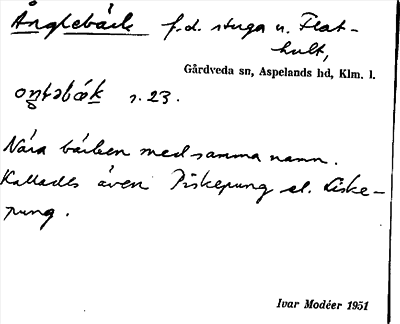 Ånglebäck f.d. stuga u. Flat-
hult,
Gårdveda sn, Aspelands hd, Klm. l.
s. 23.
Nära bäcken med samma namn.
Kallades även Piskepung el. Fiske-
pung.
Ivar Modéer 1951